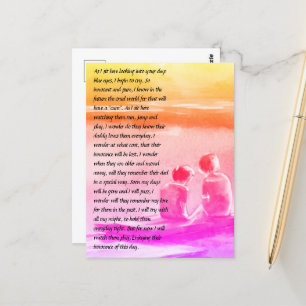 As I sit here looking into your deep
blue eyes, I begin to cry. So
innocent and pure, I know in the
future the cruel world for that will
have a "cure". As I sit here
watching them run, jump and
play, I wonder do they know their
daddy loves them everyday, I
wonder at what cost, that their
innocence will be lost. I wonder
when they are older and moved
away, will they remember their dad
in a special way. Soon my days
will be gone and I will pass, I
wonder will they remember my love
for them in the past. I will try with
all my might, to hold them
everyday tight. But for now I will
watch them play, Enjoying their
innocence of this day.